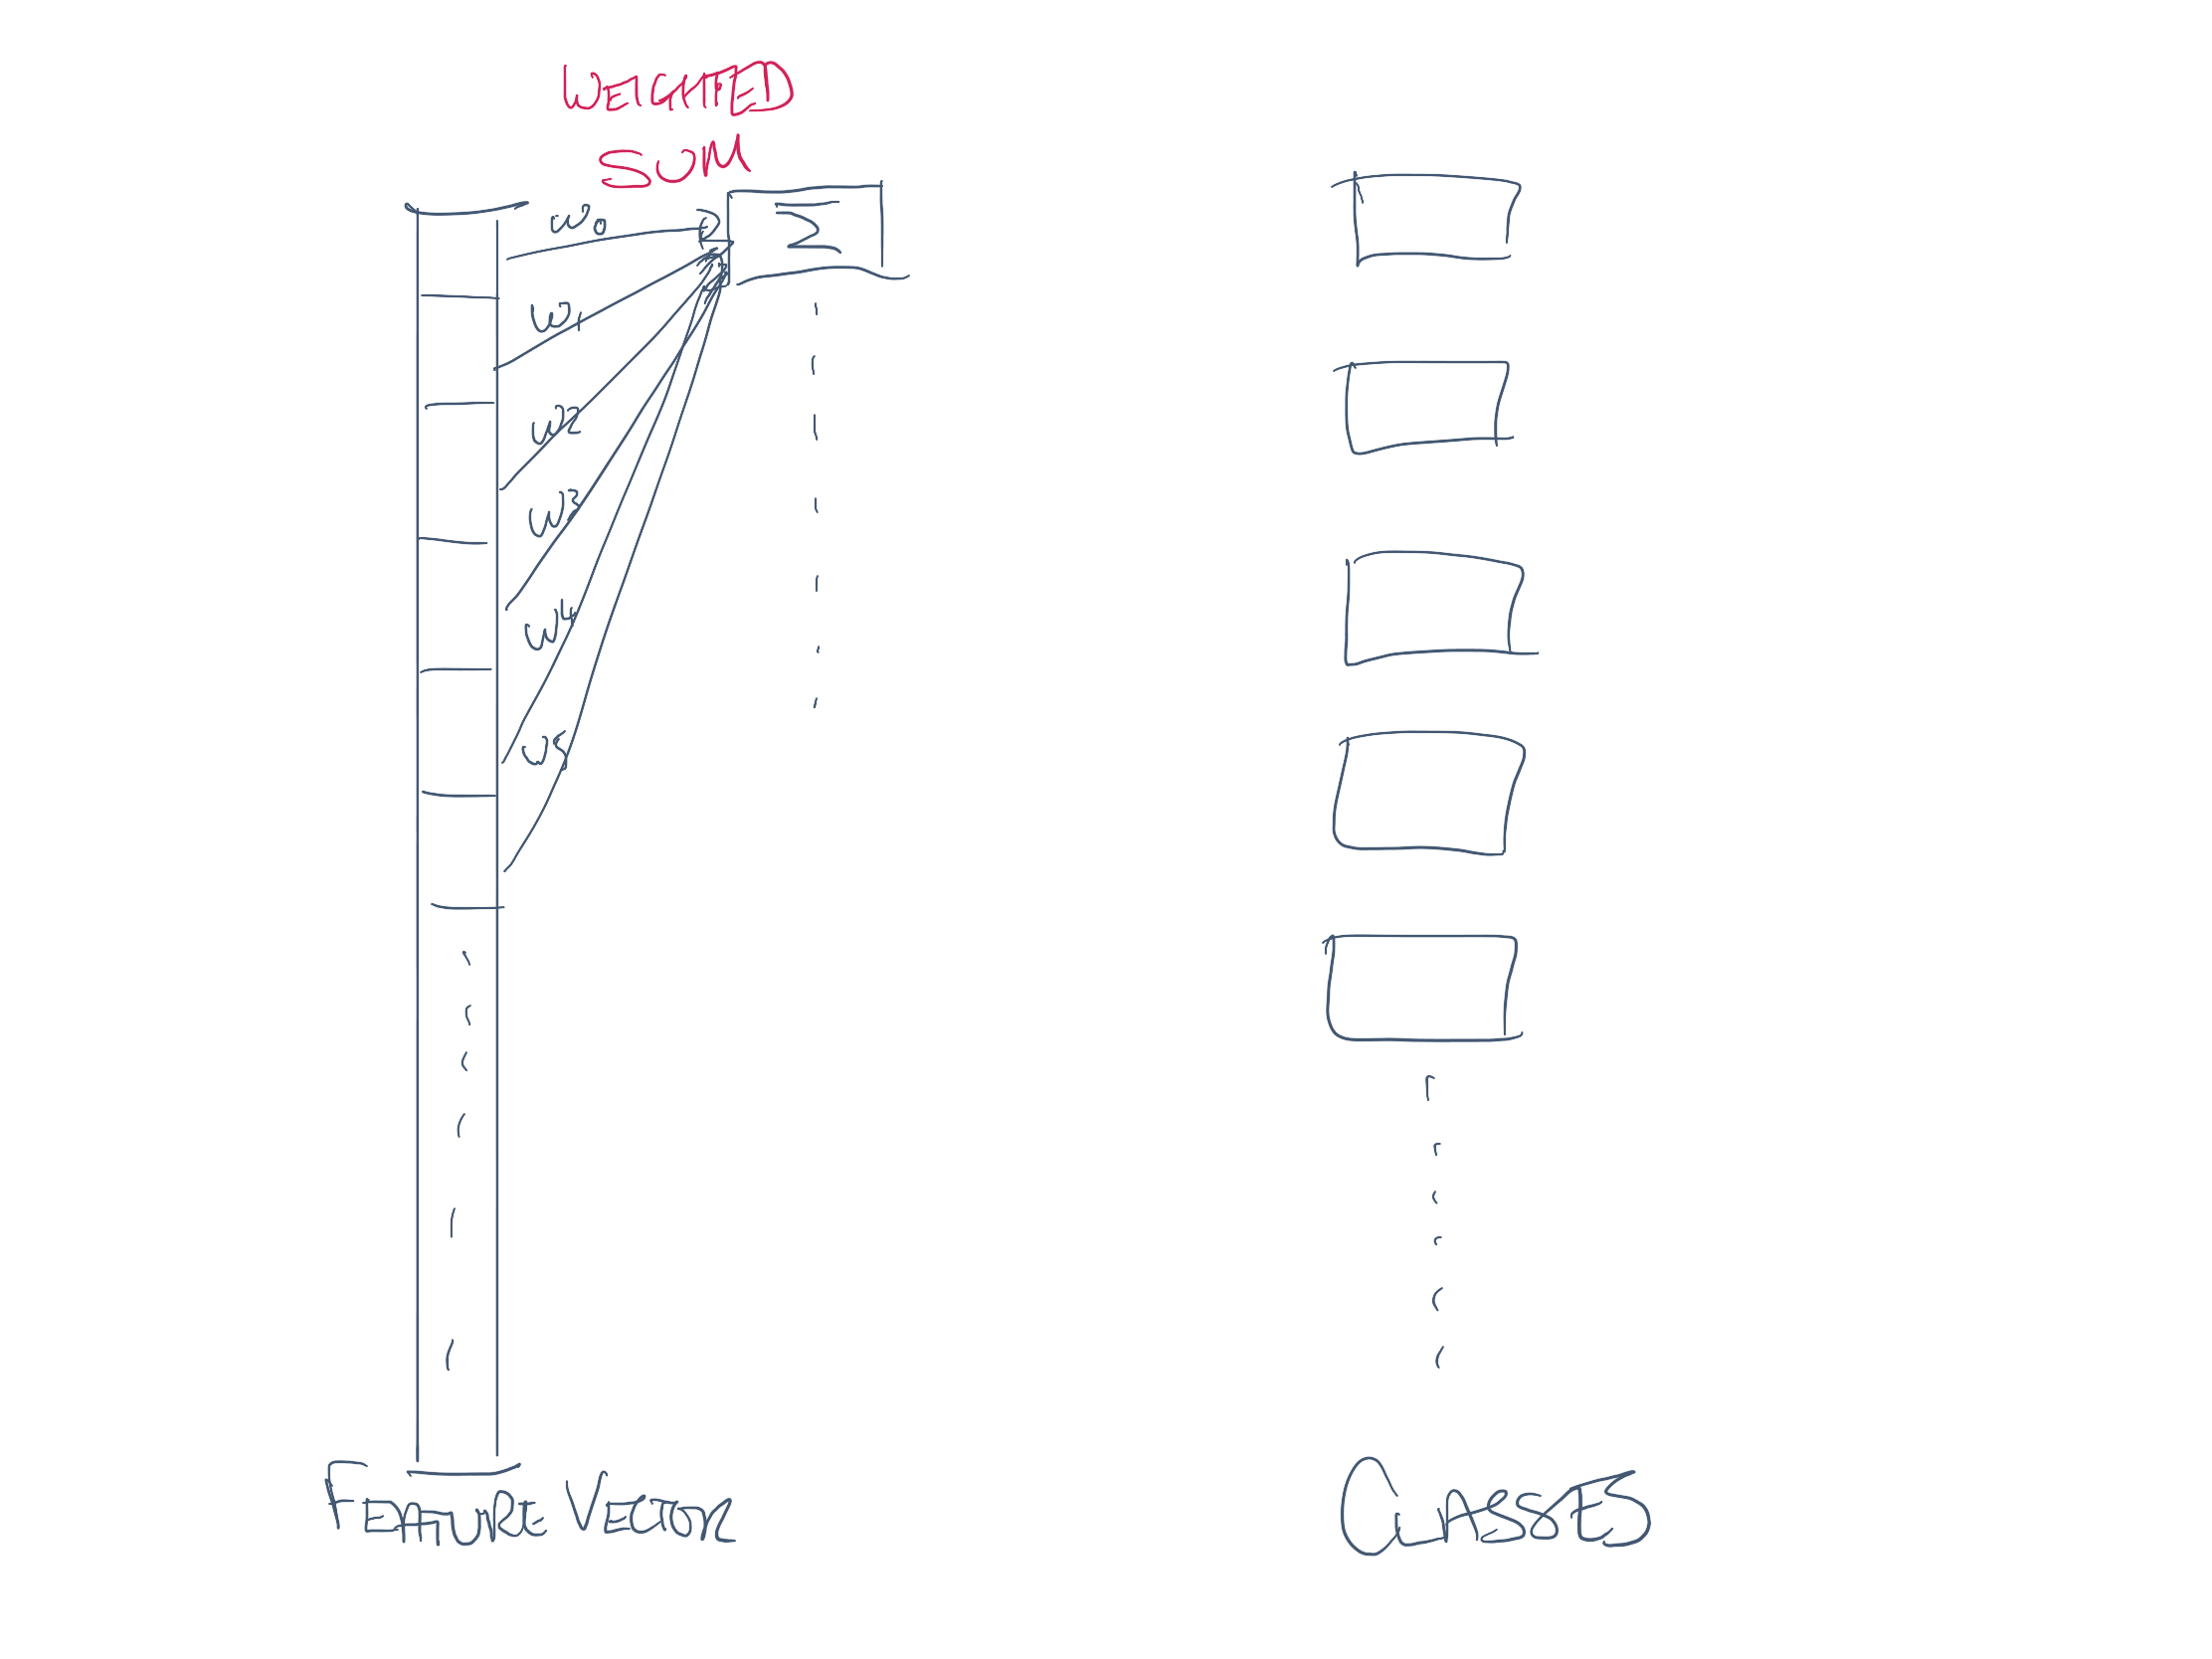 WEIGHTED
SUM
W0
Σ
W1
W2
W3
W4
W5
FEATURE VECTOR
CLASSES